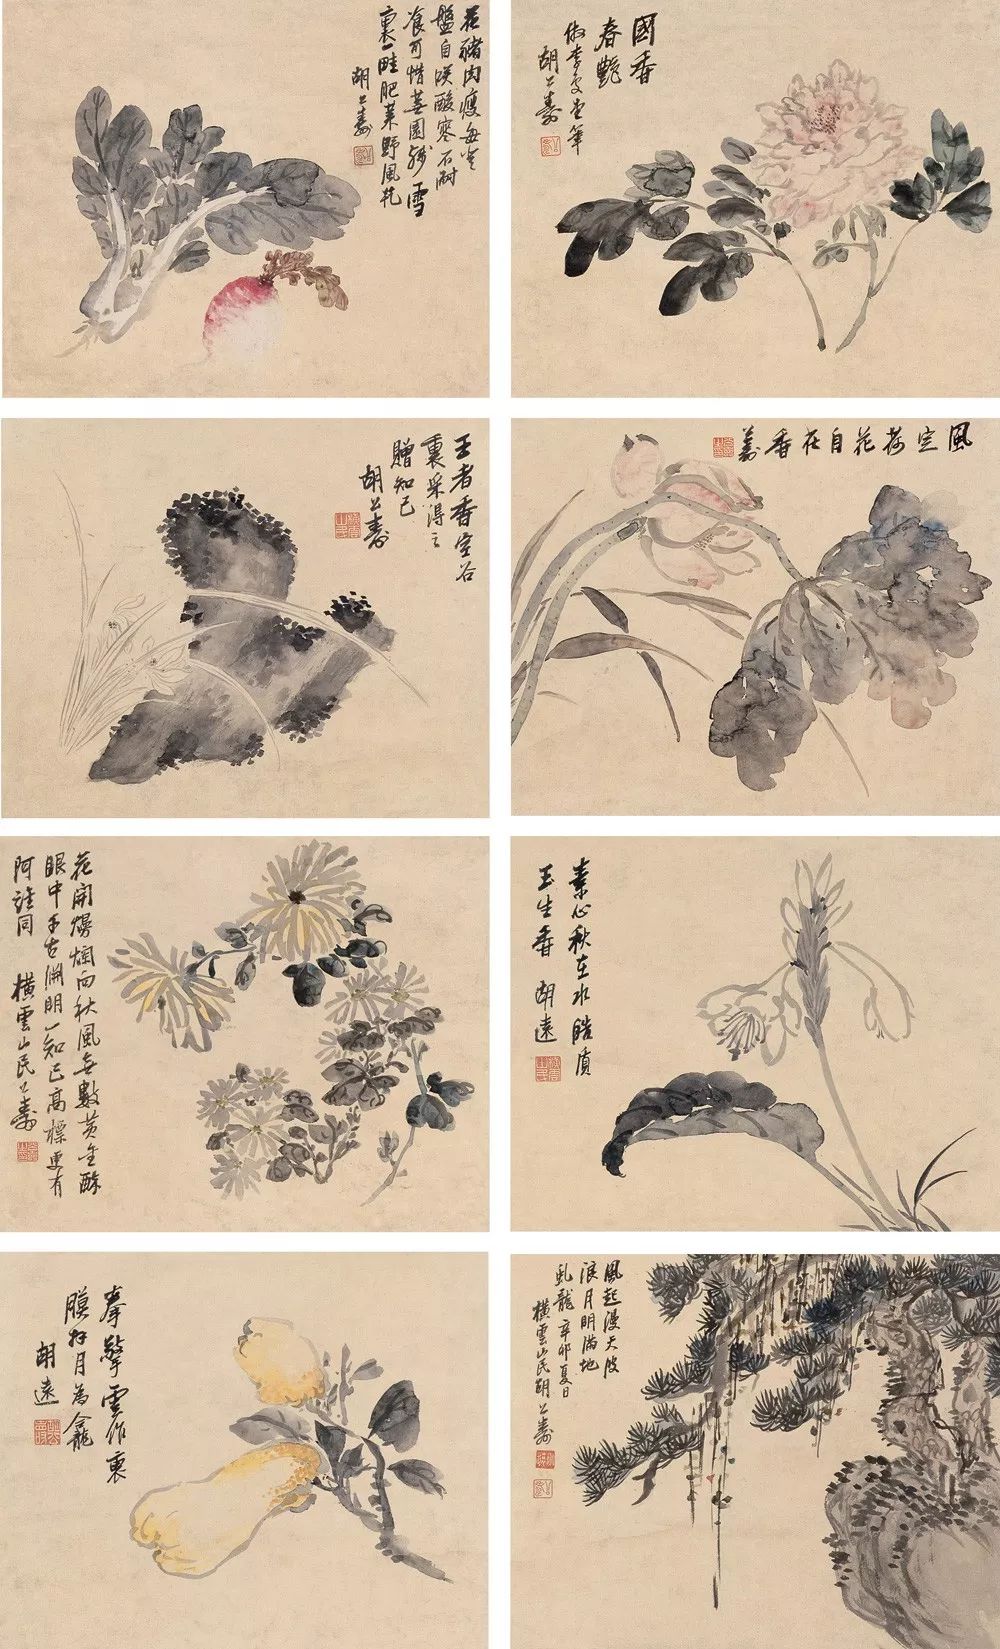 花豬肉瘦每登
盤自嘆酸寒不耐
飡可惜芜園殘雪
裏一畦肥菜野風乾
胡公壽
國香
春艷
倣李复堂筆
胡公壽
王者香空谷
裏采得之
贈知己
胡公壽
風定荷花自在香
公壽
花開爛熳向秋風無數黃金酥
眼中千古淵明一知己高標更有
阿誰同
橫雲山民公壽
素心秋在水皓質
玉生香
胡遠
拳擎雲作裏
膜拜月為龕
胡遠
風起漫天波
浪月明滿地
虬龍
辛卯夏日
橫雲山民胡公壽